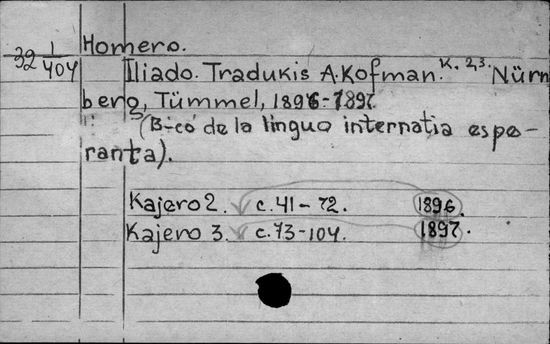 Homero.
32 1/404
Iliado. Tradukis A. Kofman. K. 2,3. Nürn
berg, Tümmel, 1896-1897.
(B-co de la linguo internatia espe-
ranta).
Kajero 2. c. 41-72. 1896.
Kajero 3. c. 73-104. 1897.